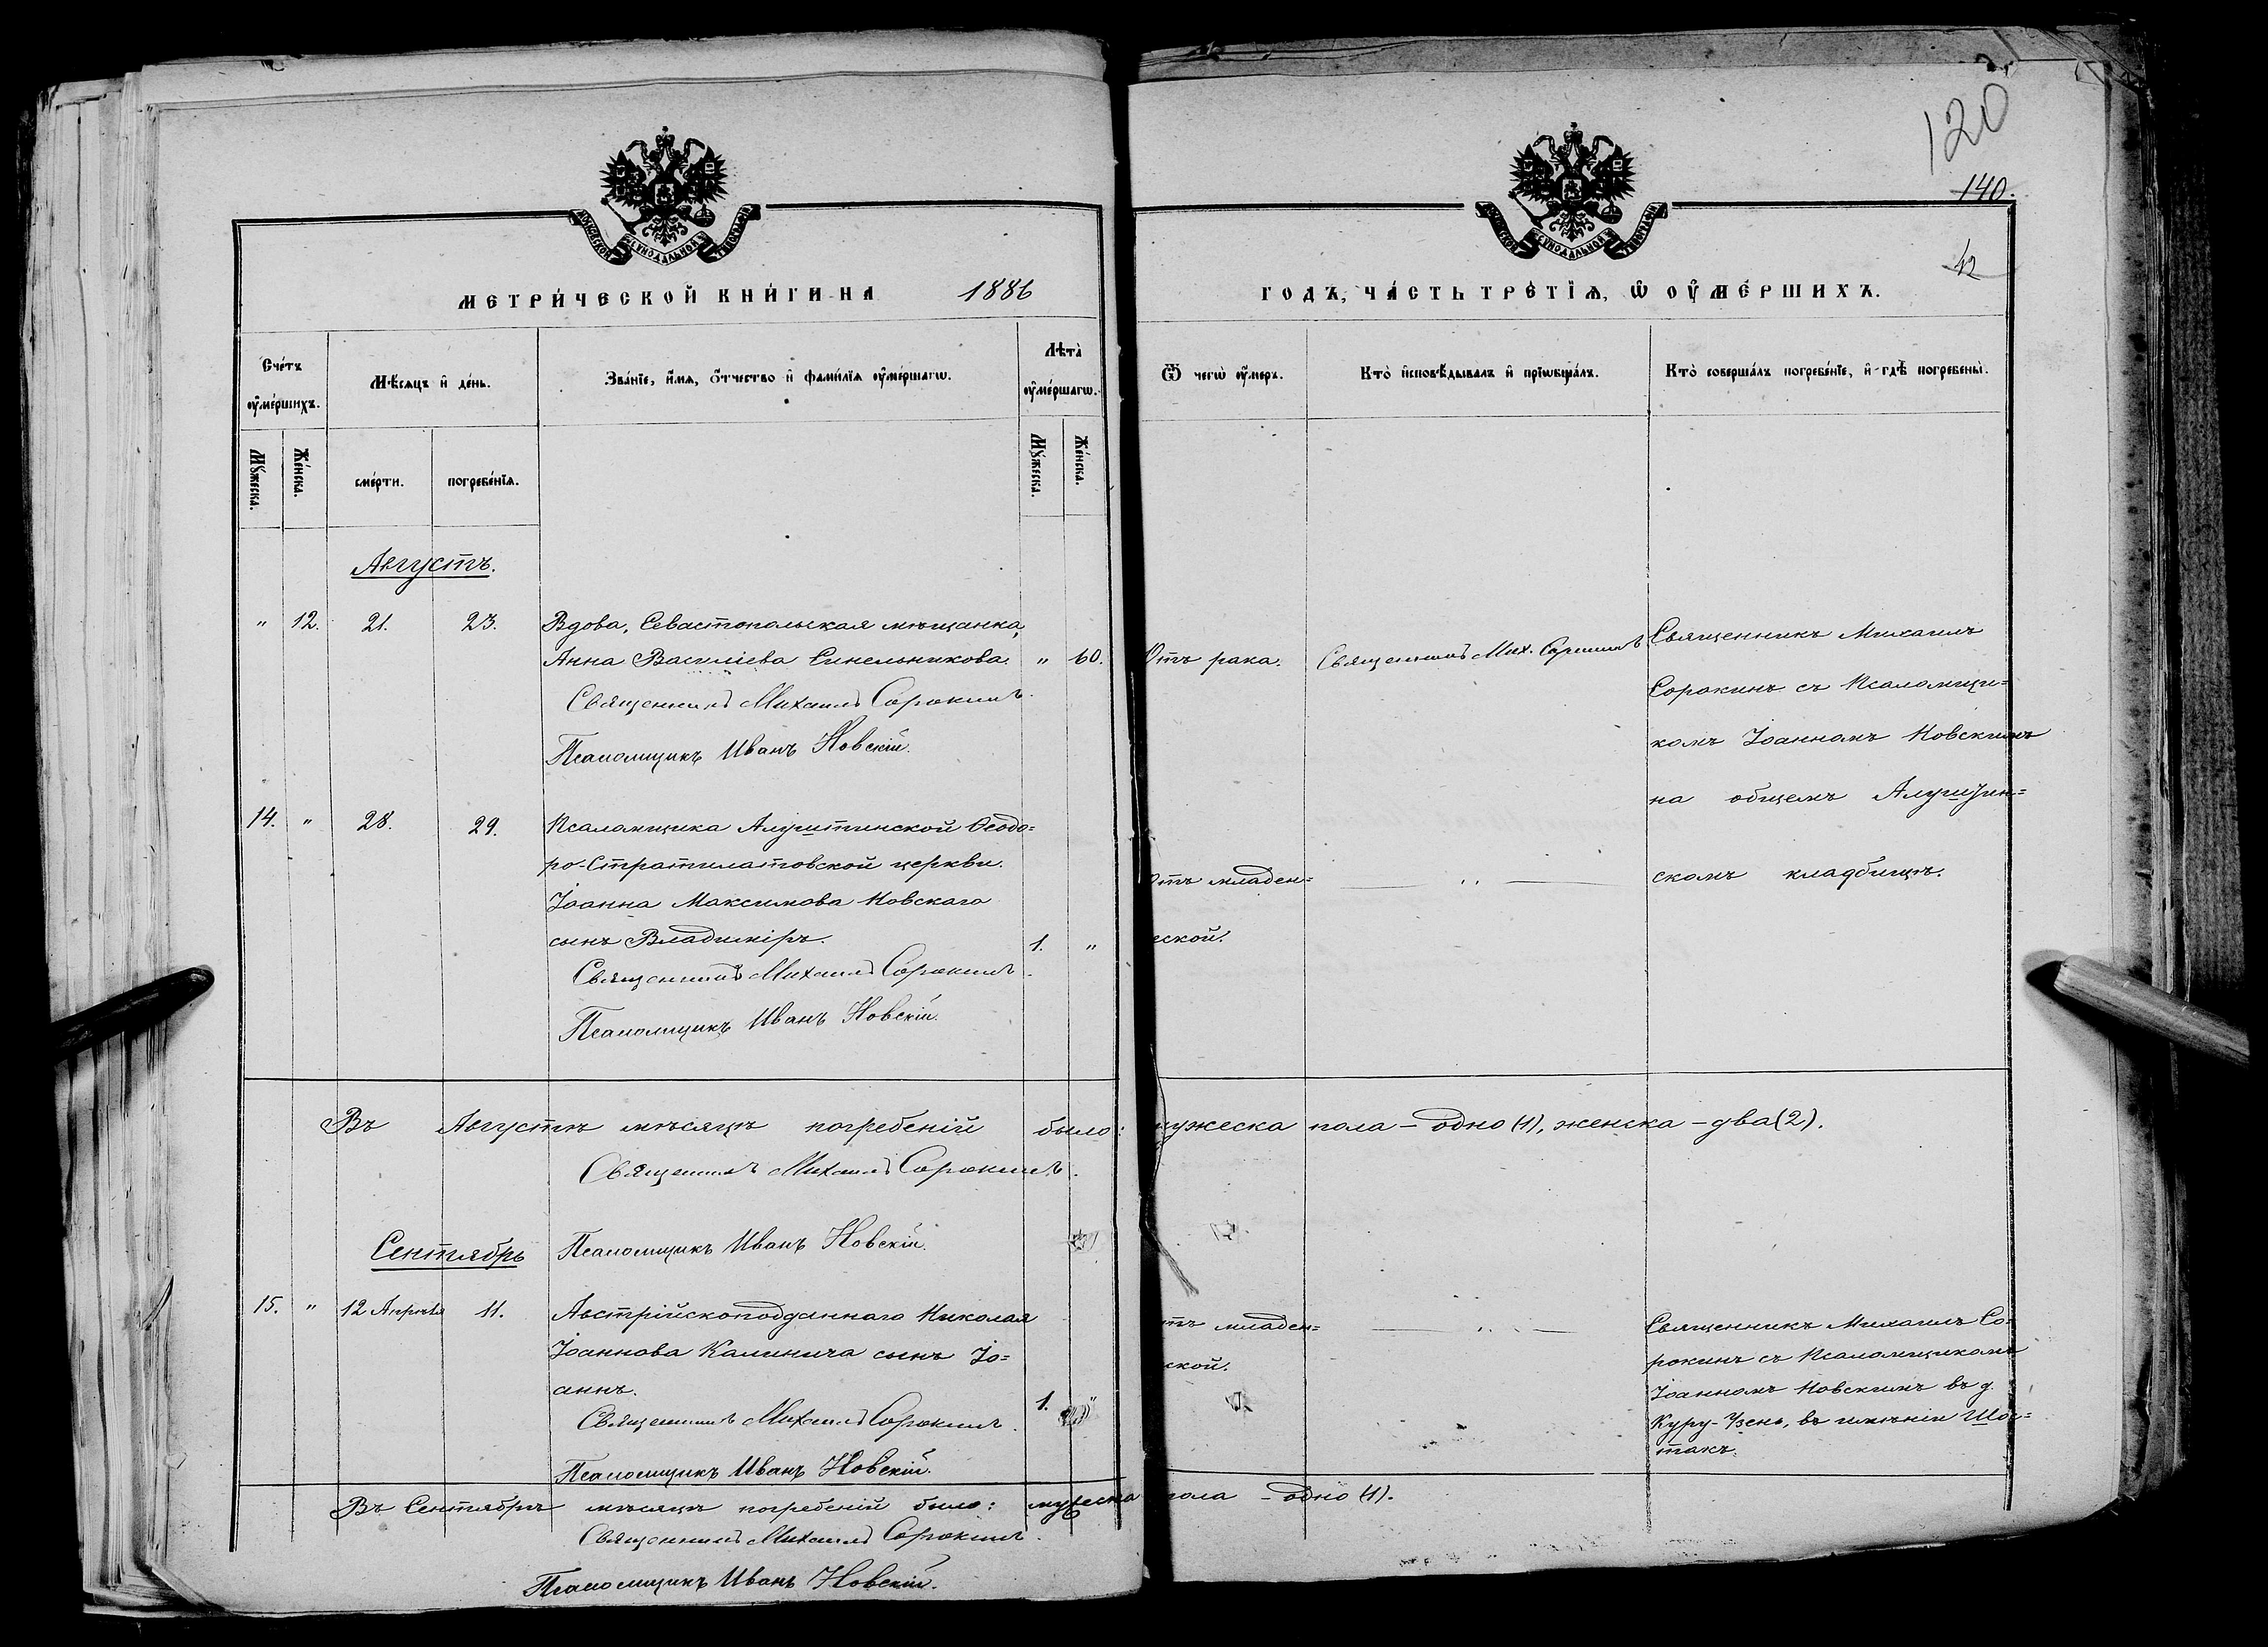 120
140.
42
МОСКОВСКОЙ СѴНОДАЛЬНОЙ ТИПОГРАФІИ
МОСКОВСКОЙ СѴНОДАЛЬНОЙ ТИПОГРАФІИ
МЕТРИ́ЧЕСКОЙ КНИ́ГИ НА 1886 ГОДЪ, ЧА́СТЬ ТРЕ́ТІѦ, Ѡ ОУМЕ́РШИХЪ.
Сче́тъ оуме́ршихъ.
Мꙋ́жеска.
Же́нска.
Мѣ́сѧцъ и де́нь.
сме́рти.
погребе́нїѧ.
Зва́нїе, и҆́мѧ, ѻ҆́тчество и҆ фами́лїѧ оу҆ме́ршагѡ.
Лѣта̀ оу҆ме́ршагѡ.
Мꙋ́жеска.
Же́нска.
Ѿ чегѡ̀ оу҆́меръ.
Кто̀ и҆сповѣ́дывалъ и҆ прїѡбща́лъ.
Кто̀ соверша́лъ погребе́нїе, и҆ гдѣ̀ погребены̀.
Августъ.
" 12. 21. 23. Вдова, Севастопольская мѣщанка,
Анна Василіева Синельникова. " 60.
Священникъ Михаилъ Сорокинъ.
Псаломщикъ Иванъ Новскій.
Отъ рака.
Священникъ Мих. Сорокинъ
Священникъ Михаилъ
Сорокинъ съ Псаломщи=
комъ Іоанномъ Новскимъ
на общемъ Алуштин=
скомъ кладбищѣ.
14. " 28. 29. Псаломщика Алуштинской Ѳеодо=
ро-Стратилатовской церкви.
Іоанна Максимова Новскаго
сынъ Владиміръ. 1. "
Священникъ Михаилъ Сорокинъ.
Псаломщикъ Иванъ Новскій.
Отъ младен=
ской.
— " —
Въ Августѣ мѣсяцѣ погребеній было: мужеска пола – одно (1), женска – два (2).
Священникъ Михаилъ Сорокинъ.
Псаломщикъ Иванъ Новскій.
Сентябрь
15. " 12 Апрѣля 11. Австрійскоподданнаго Николая
Іоаннова Калинича сынъ Іо=
аннъ. 1. "
Священникъ Михаилъ Сорокинъ.
Псаломщикъ Иванъ Новскій.
отъ младен=
ской.
— " —
Священникъ Михаилъ Со=
рокинъ съ Псаломщикомъ
Іоанномъ Новскимъ въ д.
Куру-Узень, въ имѣніи
Въ Сентябрѣ мѣсяцѣ погребеній было: мужеска пола – одно (1).
Священникъ Михаилъ Сорокинъ.
Псаломщикъ Иванъ Новскій.